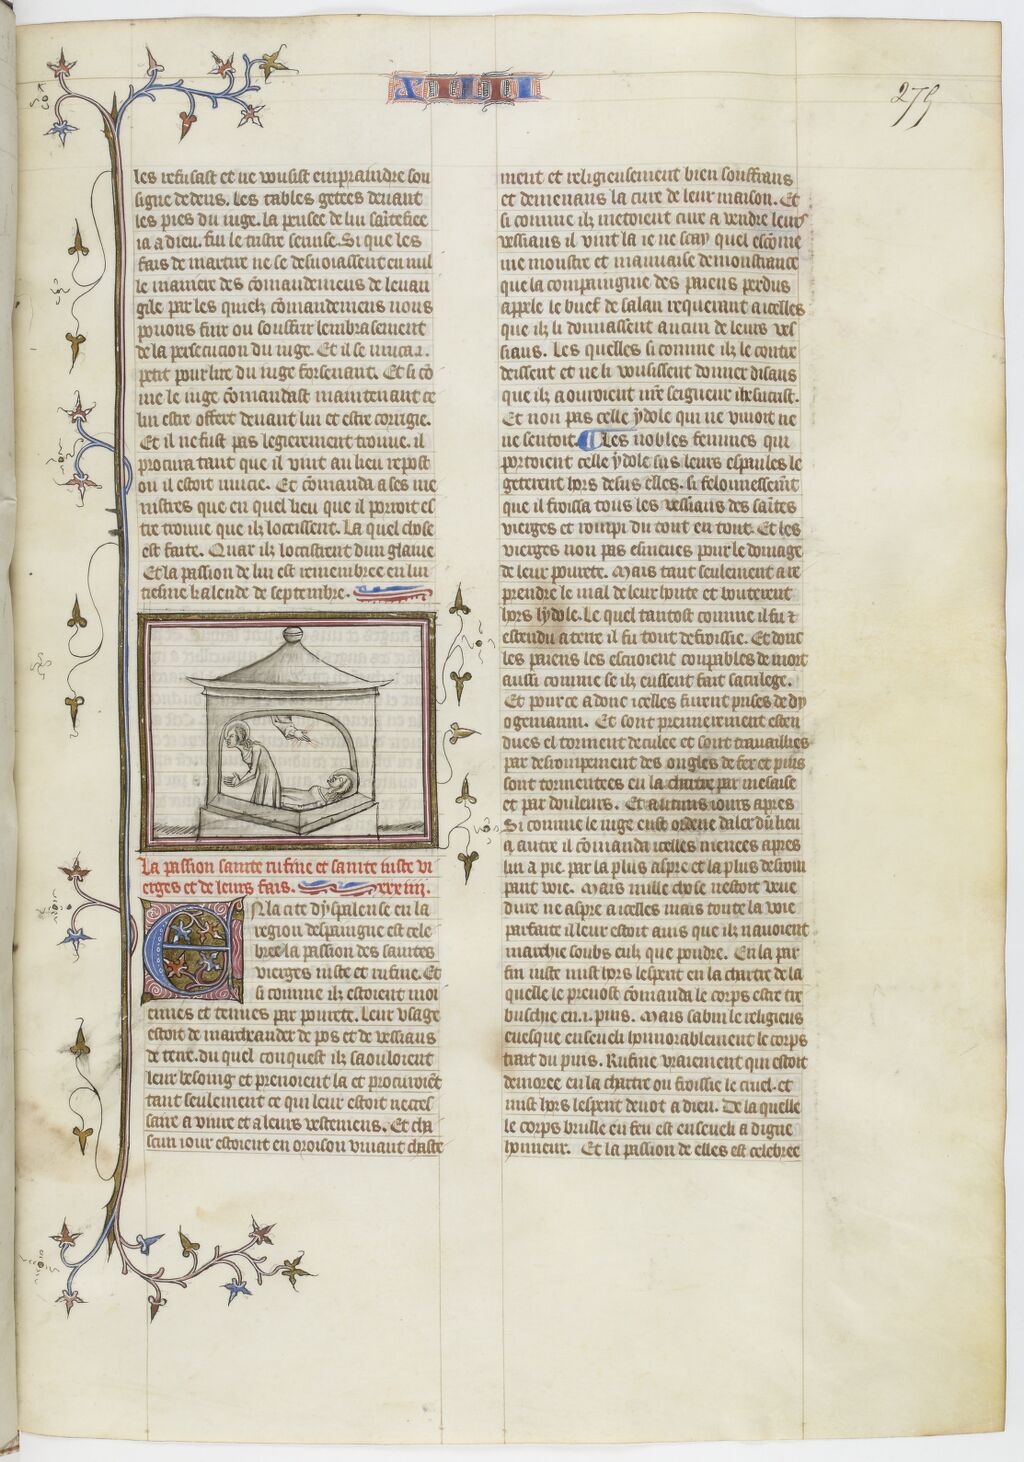 275
les refusast et ne vousist empraindre son
signe dedens. les tables getees deuant
les pies du iuge. la pensee de lui saĩtefiee
ia a dieu. fui le tristre seruise. Si que les
fais de martire ne se desuoiassent en nul
le maniere des cõmandemens de leuan
gile par les quielx cõmandemens nous
pouons fuir ou souffrir lembrasement
de la persecucion du iuge. Et il se muca .i.
petit pour lire du iuge forsenant. Et si cõ
me le iuge cõmandast maintenant ce
lui estre offert deuant lui et estre corrigie.
Et il ne fust pas legierement trouue. il
procura tant que il vint au lieu repost
ou il estoit mucie. Et cõmanda a ses me
nistres que en quel lieu que il porroit es
tre trouue que ilz loceissent. La quel chose
est faite. Quar ilz locistrent dun glaiue
Et la passion de lui est remembree en lui
tiesme kalende de septembre.
La passion sainte rufine et sainte iuste vi
erges et de leurs fais. xxxiiii.
En la cite dyspalense en la
region despaigne est cele
bree la passion des saintes
vierges iuste et rufine. Et
si comme ilz estoient moi
ennes et tenues par pourete. leur vsage
estoit de marcheander de pos et de vessiaus
de terre. du quel conquest ilz saouloient
leur besoing et prenoient la et procuroiẽt
tant seulement ce qui leur estoit neces
saire a viure et a leurs vestemens. Et cha
scun iour estoient en oroison viuant chaste
ment et religieusement bien souffrans
et demenans la cure de leur maison. Et
si comme ilz metoient cure a vendre leurs
vessiaus il vint la ie ne scay quel escõme
me moustre et mauuaise demonstrance
que la compaingnie des paiens perdus
appele le buef de salan requerant a icelles
que ilz li donnassent aucun de leurs ves
siaus. Les quelles si comme ilz le contre
deissent et ne li vousissent donner disans
que ilz aouroient nr̃e seigneur ihesucrist.
Et non pas celle ydole qui ne viuoit ne
ne sentoit. Les nobles femmes qui
portoient celle ydole sus leurs espaules le
geterent hors desus elles. si felonnessemẽt
que il froissa tous les vessiaus des saĩtes
vierges et rompi du tout en tout. Et les
vierges non pas esmeues pour le domage
de leur pourete. Mais tant seulement a re
prendre le mal de leur honte et bouterent
hors lydole. Le quel tantost comme il fu
estendu a terre il fu tout defroissie. Et donc
les paiens les escrioient coupables de mort
aussi comme se ilz eussent fait sacrilege.
Et pour ce adonc icelles furent prises de dy
ogeniann. Et sont premierement esten
dues el torment deculee et sont trauaillies
par desrompement des ongles de fer et puis
sont tormentees en la chartre par mesaise
et par douleurs. Et aucuns iours apres
Si comme le iuge eust ordene daler dũ lieu
a autre il cõmanda icelles menees apres
lui a pie. par la plus aspre et la plus desrom
pant voie. Mais nulle chose nestoit veue
dure ne aspre a icelles mais toute la voie
parfaite il leur estoit auis que ilz nauoient
marchie soubs eulz que poudre. En la par
fin iuste mist hors lesprit en la chartre de la
quelle le preuost cõmanda le corps estre tre
buschie en .i. puis. Mais sabin le religieus
euesque enseueli honnorablement le corps
trait du puis. Rufine vraiement qui estoit
demoree en la chartre ou froissie le cruel. et
mist hors lesprit deuot a dieu. De la quelle
le corps brusle en feu est enseueli a digne
honneur. Et la passion de elles est celebree